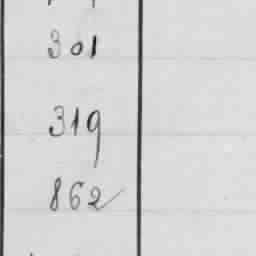 301
319
862